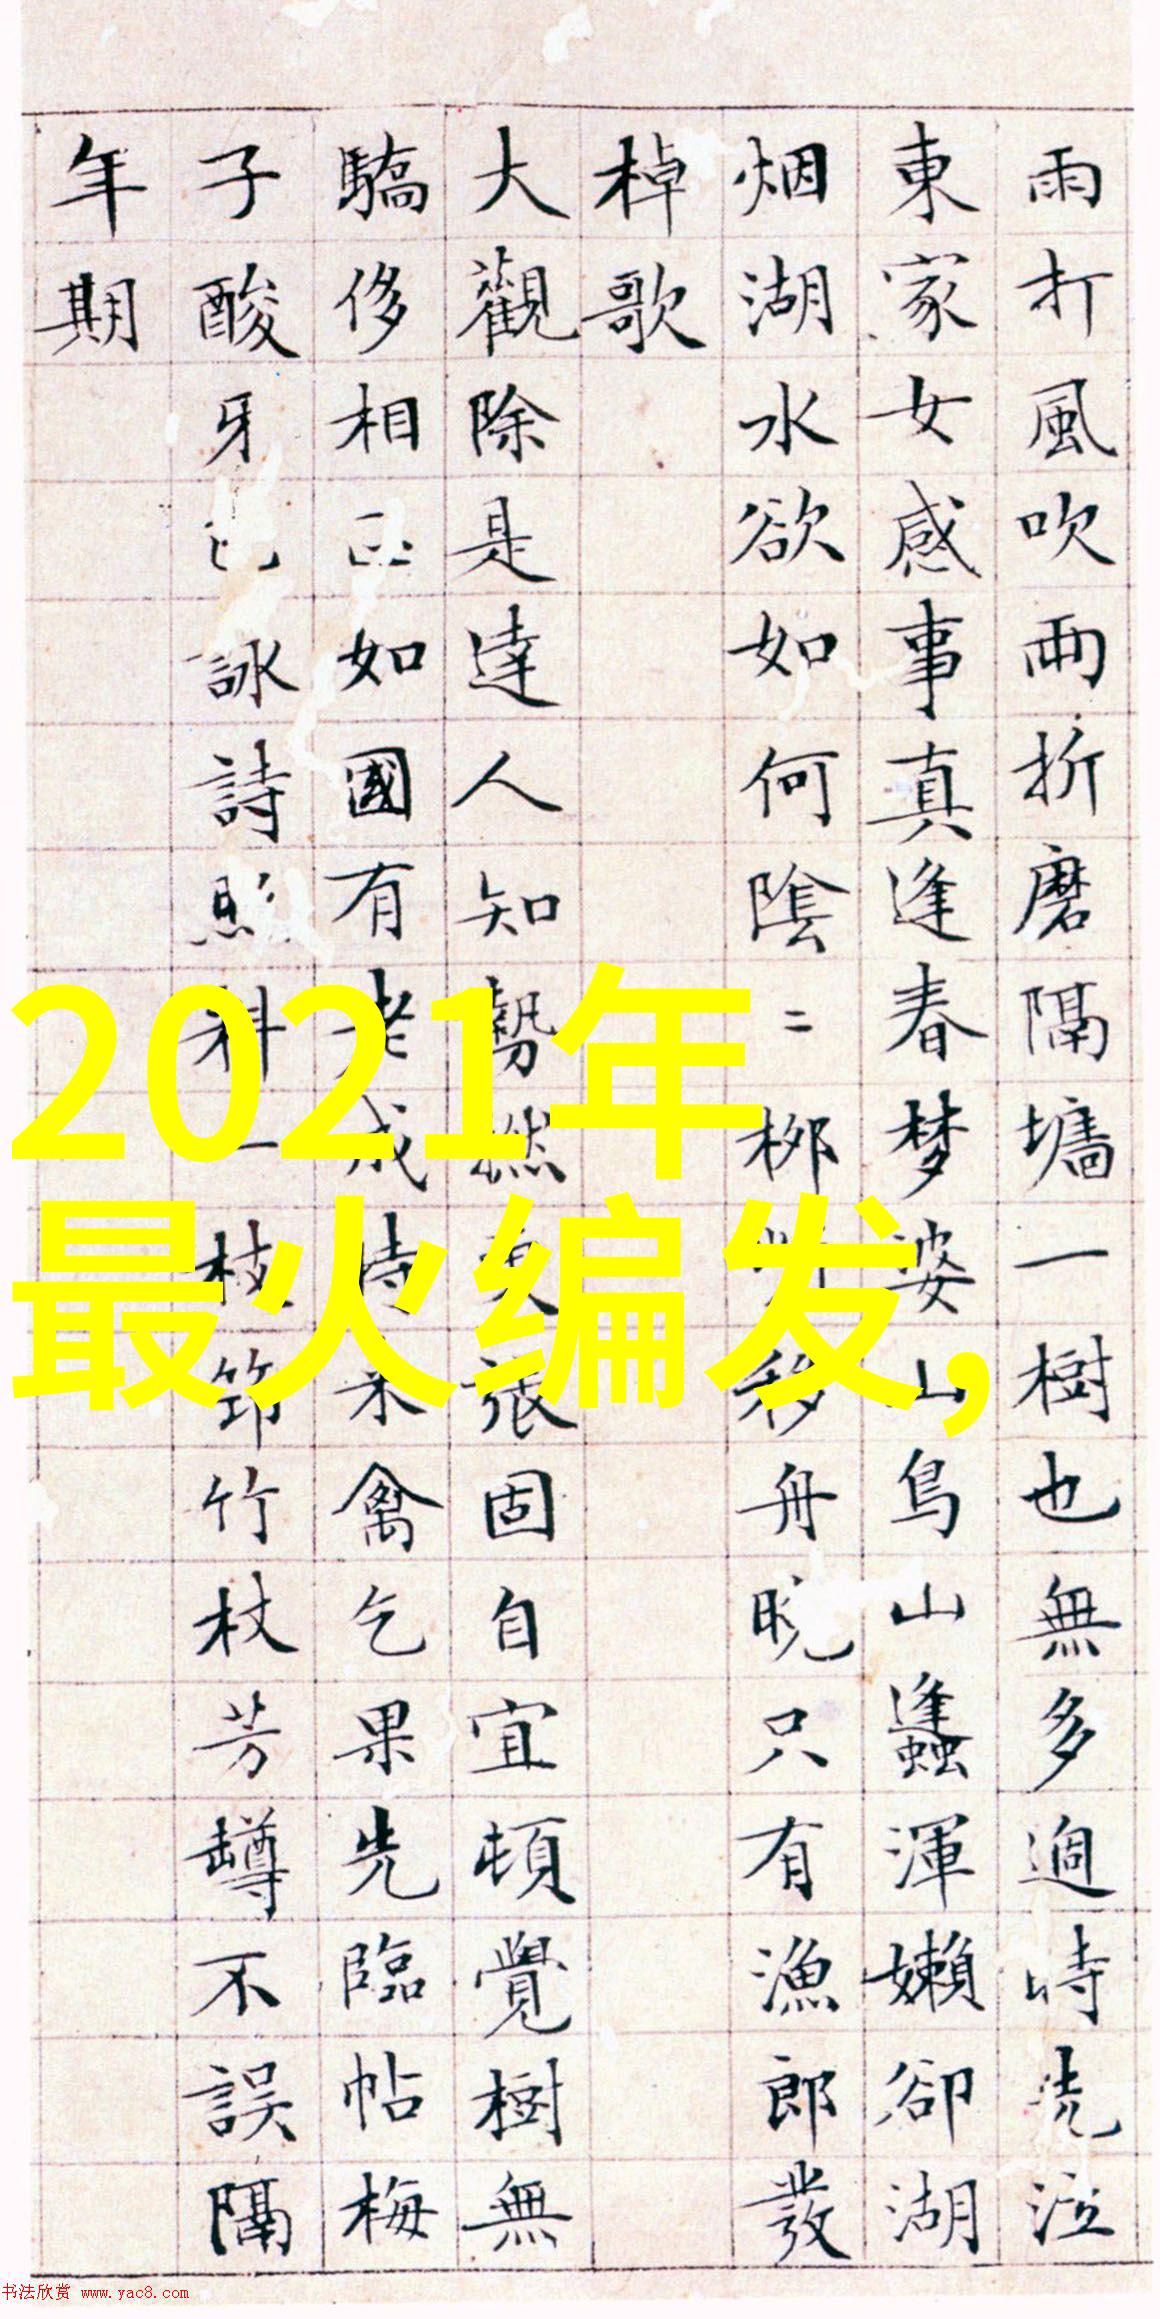 雨打風吹雨折磨隔墻一樹也無多過時洗泣
東家女感事真逢春梦婆山鳥山蠭渾嬾卻湖
烟湖水欲如何陰二柳移舟晚只有漁郎發
棹歌
大觀除是達人知勢張固自宜頓覺樹無
驕侈相如國有老成持禾禽乞果先臨帖梅
子酸牙詠詩照科一枝筇竹杖芳罇不誤隔
年期
2021年
最火编发,
书法欣赏 www.yac8.com